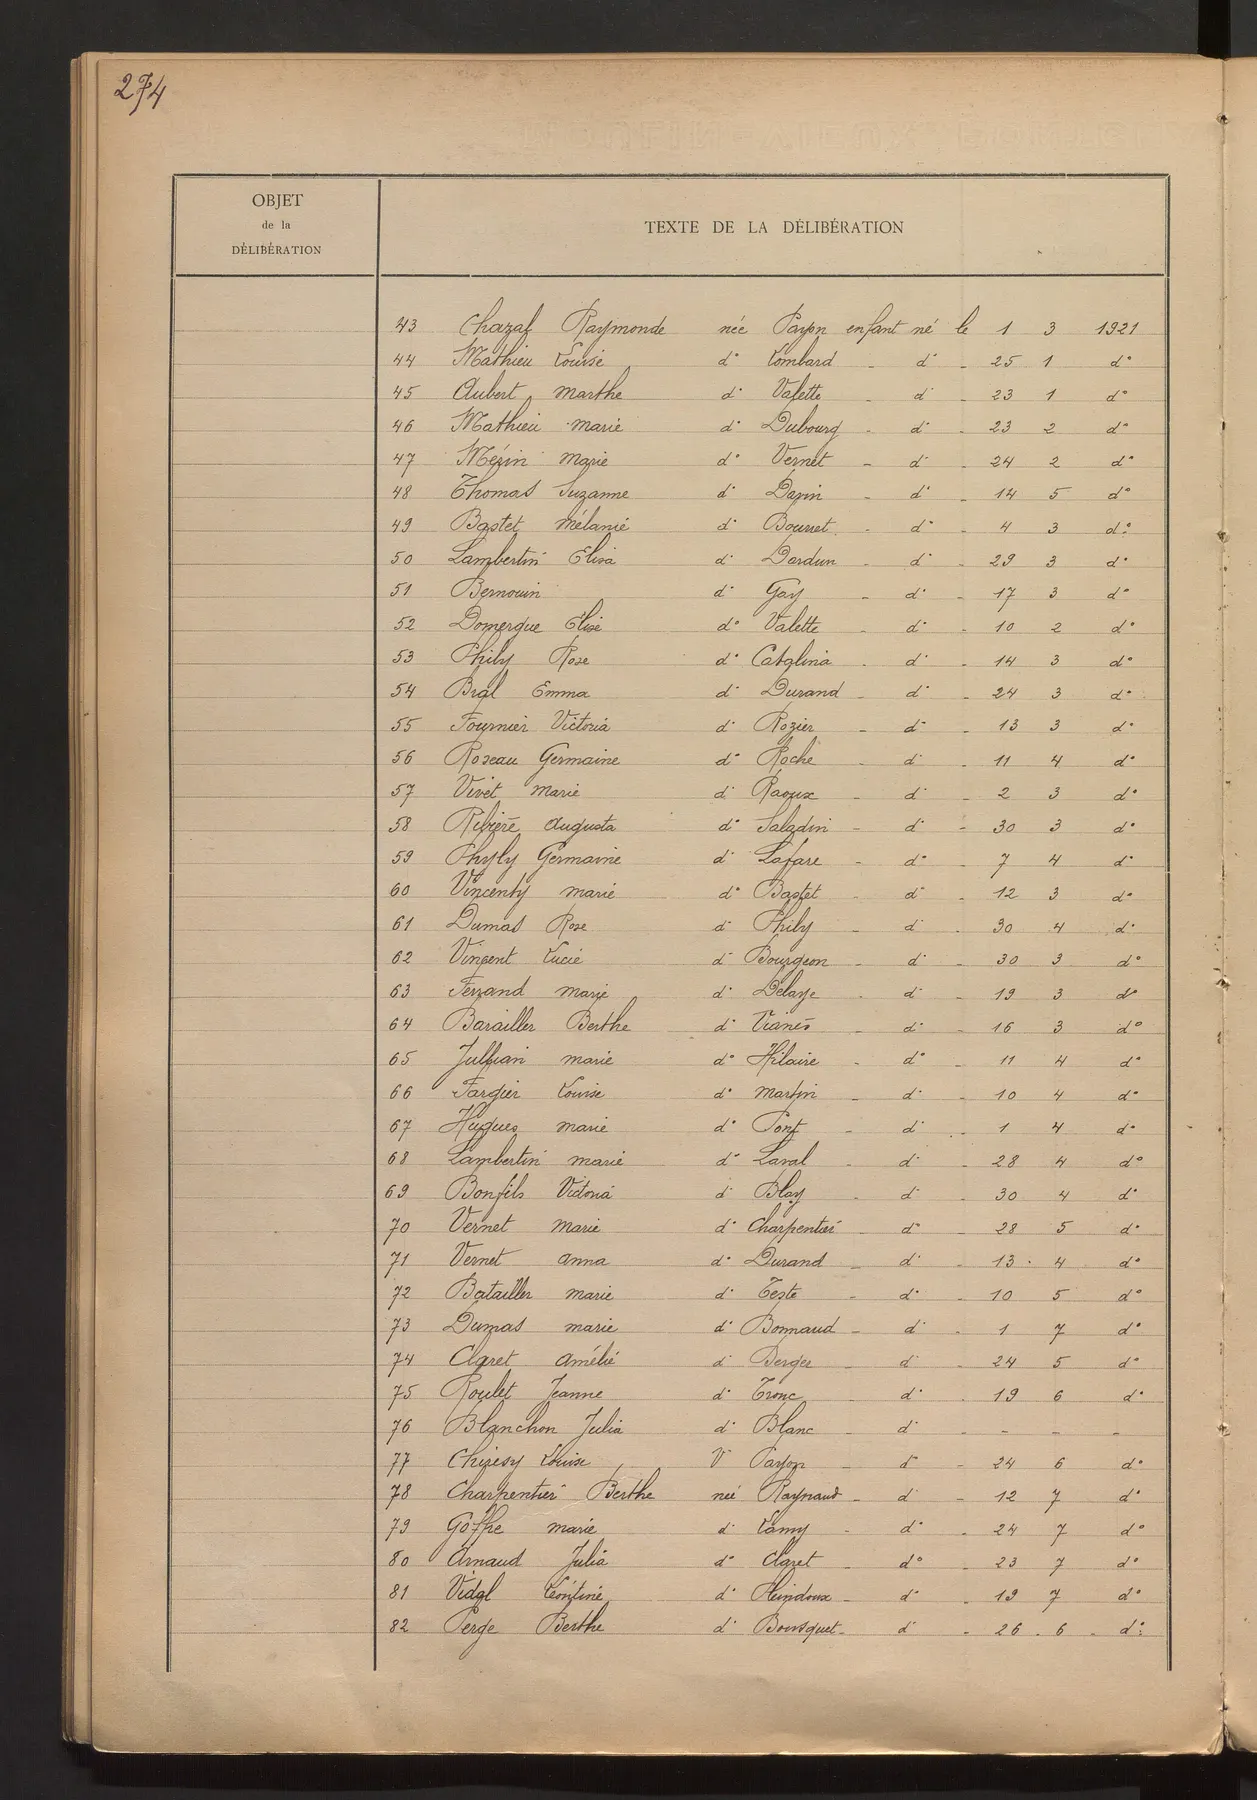 274
OBJET
de la
DÉLIBÉRATION
TEXTE DE LA DÉLIBÉRATION
43 Chazal Raymonde née Payon enfant né le 1 3 1921
44 Mathieu Louise d° Lombard - d° - 25 1 d°
45 Aubert Marthe d° Valette - d° - 23 1 d°
46 Mathieu Marie d° Dubourg - d° - 23 2 d°
47 Mézin Marie d° Vernet - d° - 24 2 d°
48 Thomas Suzanne d° - d° - 14 5 d°
49 Bastet Mélanie d° Bourret - d° - 4 3 d°
50 Lambertin Elisa d° Dardun - d° - 29 3 d°
51 Bernouin d° Gay - d° - 17 3 d°
52 Domergue Elise d° Valette - d° - 10 2 d°
53 Phily Rose d° Catglina - d° - 14 3 d°
54 Bral Emma d° Durand - d° - 24 3 d°
55 Fournier Victoria d° Rozier - d° - 13 3 d°
56 Roseau Germaine d° Roche - d° - 11 4 d°
57 Vivet Marie d° Raoux - d° - 2 3 d°
58 Ribière Augusta d° Saladin - d° - 30 3 d°
59 Phyly Germaine d° Lafare - d° - 7 4 d°
60 Vincenty Marie d° Bastet - d° - 12 3 d°
61 Dumas Rose d° Phily - d° - 30 4 d°
62 Vincent Lucie d° Bourgeon - d° - 30 3 d°
63 Ferrand Marie d° Delaye - d° - 19 3 d°
64 Barailler Berthe d° Vianès - d° - 16 3 d°
65 Jullian Marie d° Hilaire - d° - 11 4 d°
66 Fargier Louise d° Martin - d° - 10 4 d°
67 Hugues Marie d° Pont - d° - 1 4 d°
68 Lambertin Marie d° Laval - d° - 28 4 d°
69 Bonfils Victoria d° Blay - d° - 30 4 d°
70 Vernet Marie d° Charpentier - d° - 28 5 d°
71 Vernet Anna d° Durand - d° - 13 4 d°
72 Batailler Marie d° Teste - d° - 10 5 d°
73 Dumas Marie d° Bonnaud - d° - 1 7 d°
74 Claret Amélie d° Berger - d° - 24 5 d°
75 Roulet Jeanne d° Tronc - d° - 19 6 d°
76 Blanchon Julia d° Blanc - d° - - - -
77 Louise V° Payon - d° - 24 6 d°
78 Charpentier Berthe née Raynaud - d° - 12 7 d°
79 Goffre Marie d° Lamy - d° - 24 7 d°
80 Arnaud Julia d° Claret - d° - 23 7 d°
81 Vidal Léontine d° - d° - 19 7 d°
82 Perge Berthe d° Bousquet - d° - 26 - 6 - d°